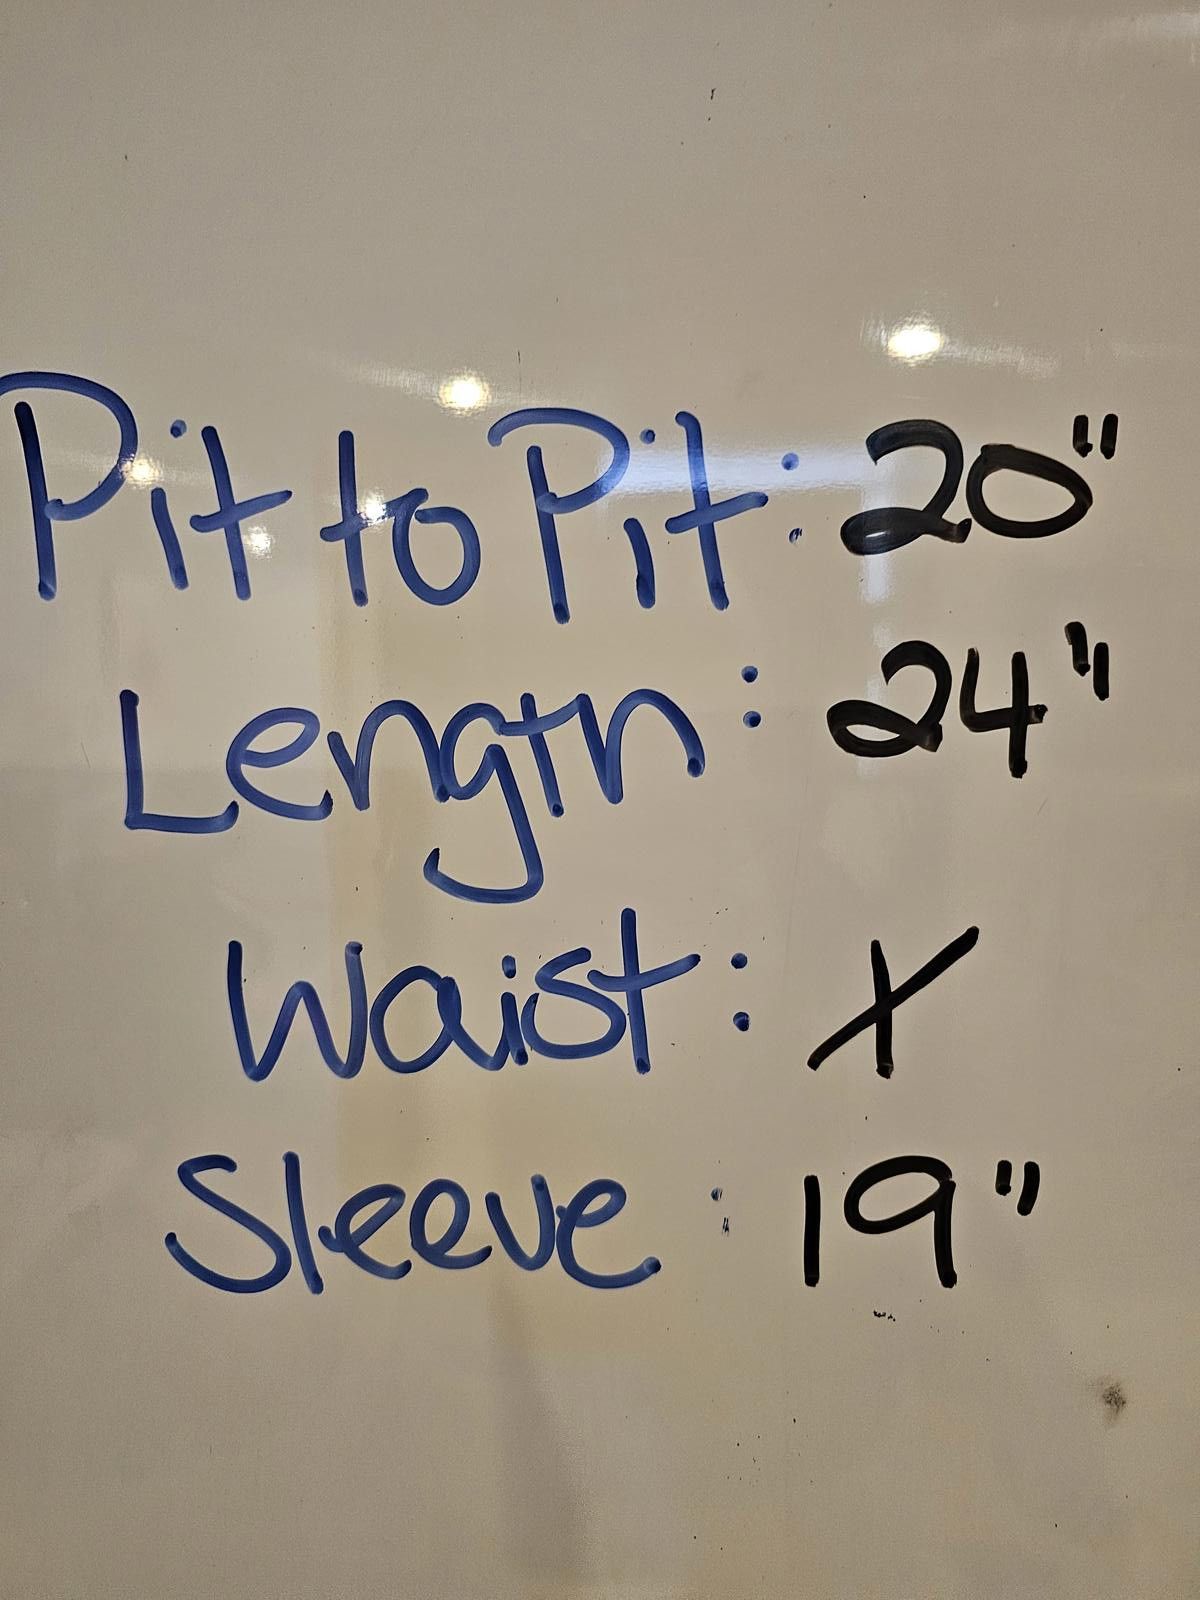 Pit to Pit: 20"
Length: 24"
Waist: X
Sleeve: 19"